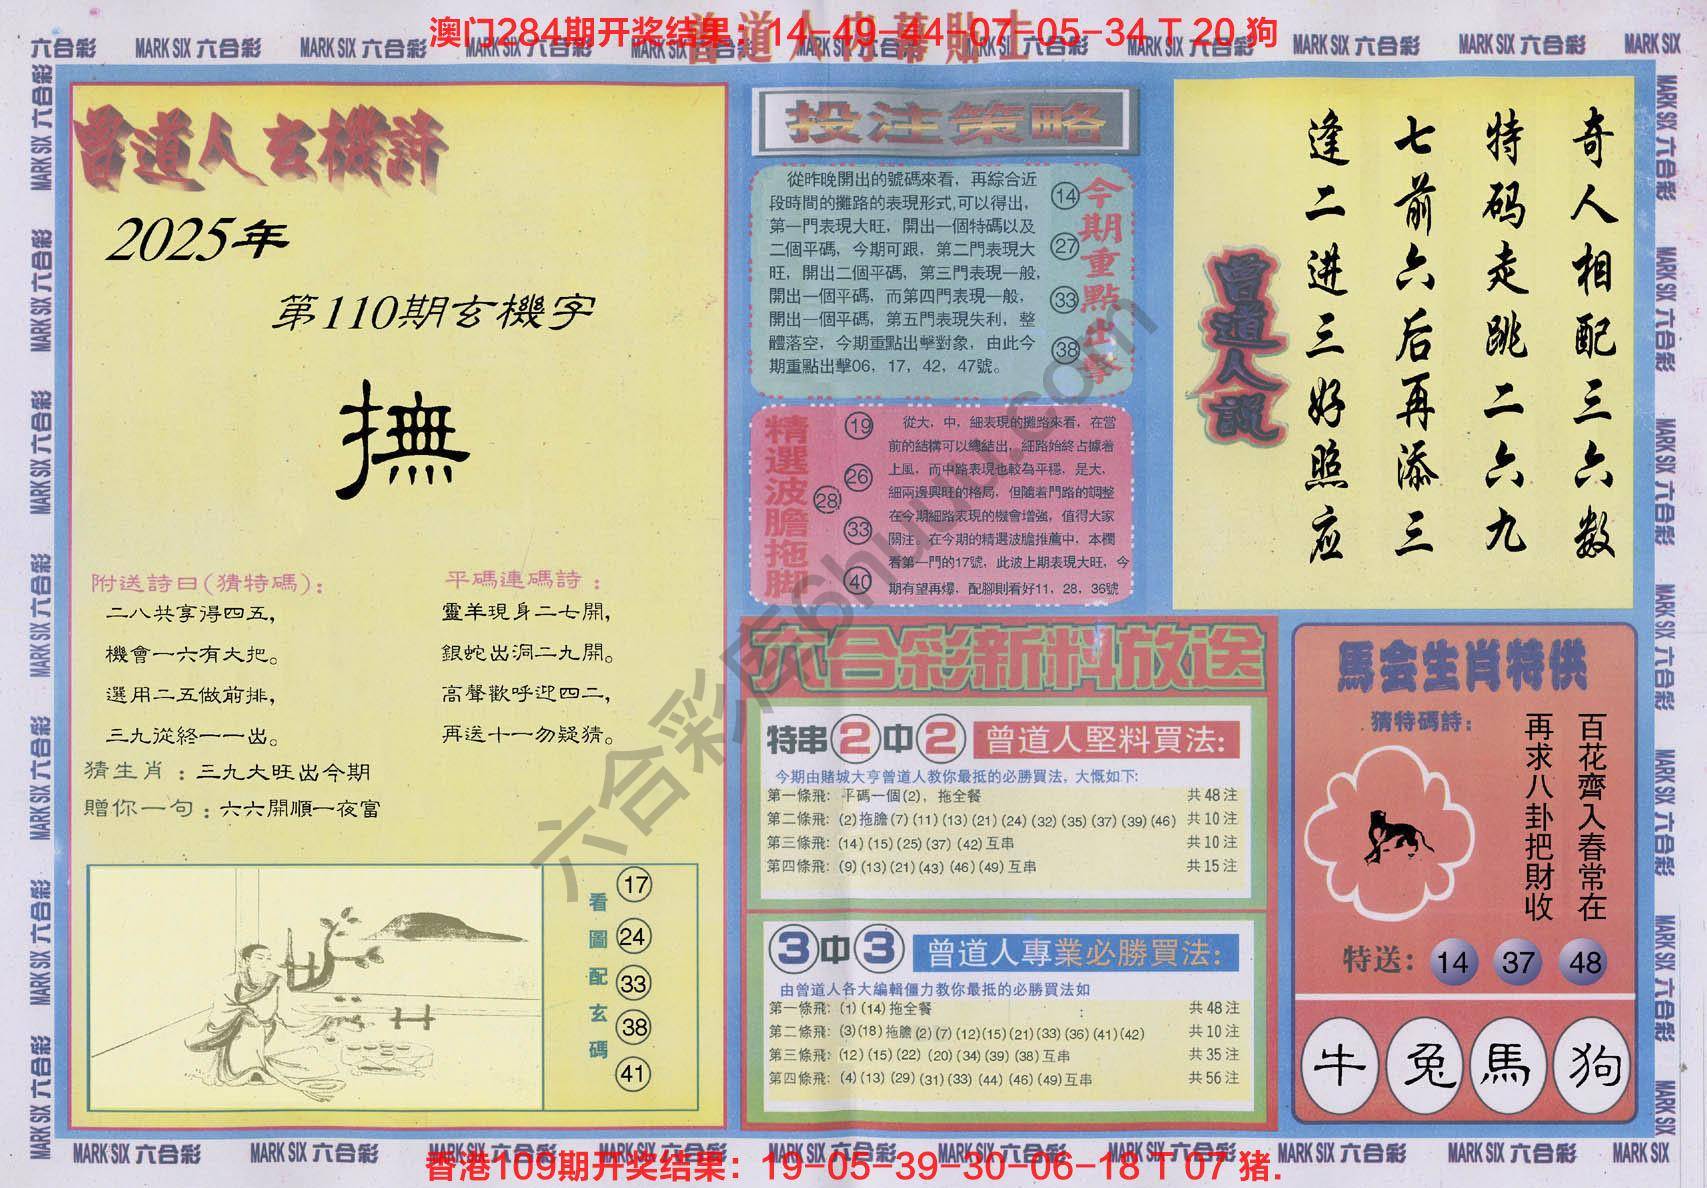 澳门284期开奖结果：14-49-44-07-05-34 T 20 狗
曾道人内幕貼士
六合彩 MARK SIX 六合彩 MARK SIX 六合彩 MARK SIX 六合彩 MARK SIX
曾道人玄機詩
2025年
第110期玄機字
撫
附送詩曰(猜特碼)：
二八共享得四五，
機會一六有大把。
選用二五做前排，
三九從終一一出。
平碼連碼詩：
靈羊現身二七開，
銀蛇出洞二九開。
高聲歡呼迎四二，
再送十一勿疑猜。
猜生肖：三九大旺出今期
贈你一句：六六開順一夜富
看圖配玄碼
17
24
33
38
41
投注策略
從昨晚開出的號碼來看，再綜合近
段時間的攤路的表現形式,可以得出，
第一門表現大旺，開出一個特碼以及
二個平碼，今期可跟，第二門表現大
旺，開出二個平碼，第三門表現一般，
開出一個平碼，而第四門表現一般，
開出一個平碼，第五門表現失利，整
體落空，今期重點出擊對象，由此今
期重點出擊06，17，42，47號。
14
27
33
38
今期重點出擊
精選波膽拖脚
19
26
28
33
40
從大，中，細表現的攤路來看，在當
前的結構可以總結出，細路始終占據着
上風，而中路表現也較為平穩，是大，
細兩邊興旺的格局，但隨着門路的調整
在今期細路表現的機會增強，值得大家
關注。在今期的精選波膽推薦中，本欄
看第一門的17號，此波上期表現大旺，今
期有望再爆，配腳則看好11，28，36號
六合彩新料放送
特串2中2 曾道人堅料買法:
今期由賭城大亨曾道人教你最抵的必勝買法，大慨如下:
第一條飛: 平碼一個(2)，拖全餐 共48注
第二條飛: (2)拖膽(7)(11)(13)(21)(24)(32)(35)(37)(39)(46) 共10注
第三條飛: (14)(15)(25)(37)(42)互串 共10注
第四條飛: (9)(13)(21)(43)(46)(49)互串 共15注
3中3 曾道人專業必勝買法:
由曾道人各大編輯僵力教你最抵的必勝買法如
:
第一條飛: (1)(14)拖全餐 共48注
第二條飛: (3)(18)拖膽(2)(7)(12)(15)(21)(33)(36)(41)(42) 共10注
第三條飛: (12)(15)(22)(20)(34)(39)(38)互串 共35注
第四條飛: (4)(13)(29)(31)(33)(44)(46)(49)互串 共56注
奇人相配三六数
特码走跳二六九
七前六后再添三
逢二进三好照应
曾道人說
馬会生肖特供
猜特碼詩：
百花齊入春常在
再求八卦把財收
特送：14 37 48
牛 兔 馬 狗
六合彩库6huuu.com
MARK SIX 六合彩 MARK SIX 六合彩 MARK SIX 六合彩 MARK SIX 六合彩 MARK SIX
香港109期开奖结果：19-05-39-30-06-18 T 07 猪.